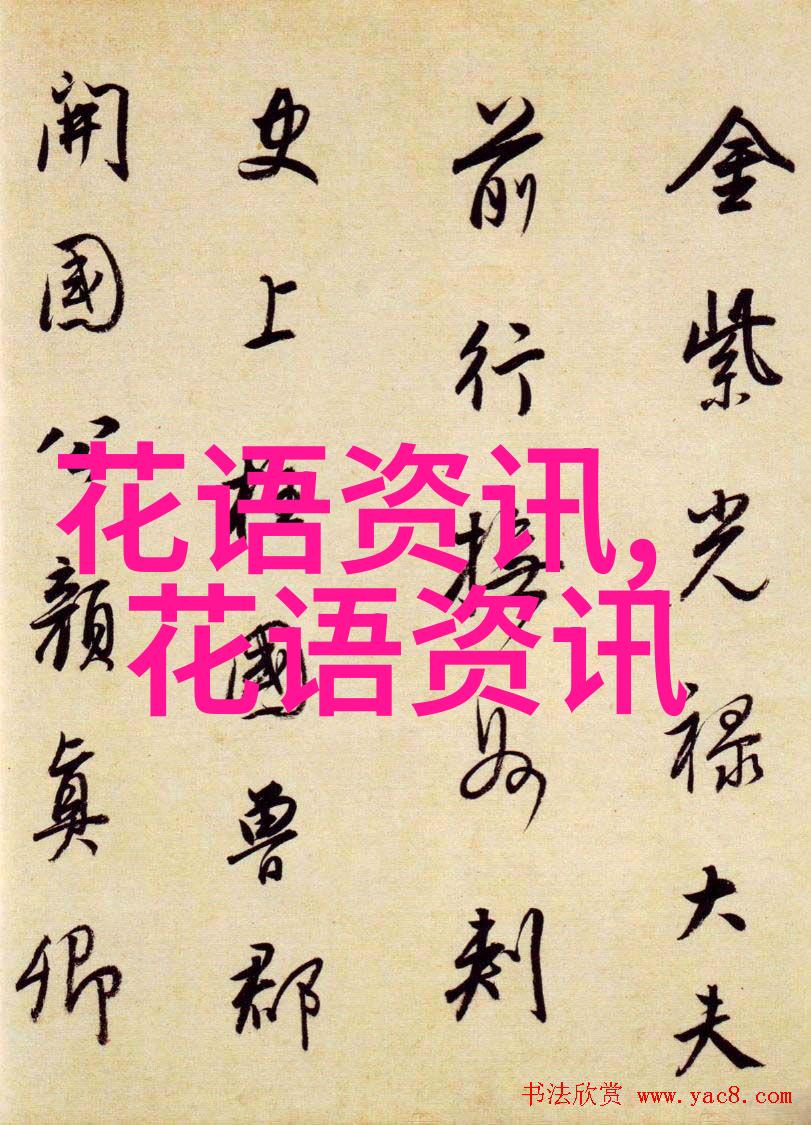 金紫光禄大夫
前行撫州刺
史上柱國魯郡
開國公顔真卿
花语资讯,
花语资讯
书法欣赏 www.yac8.com